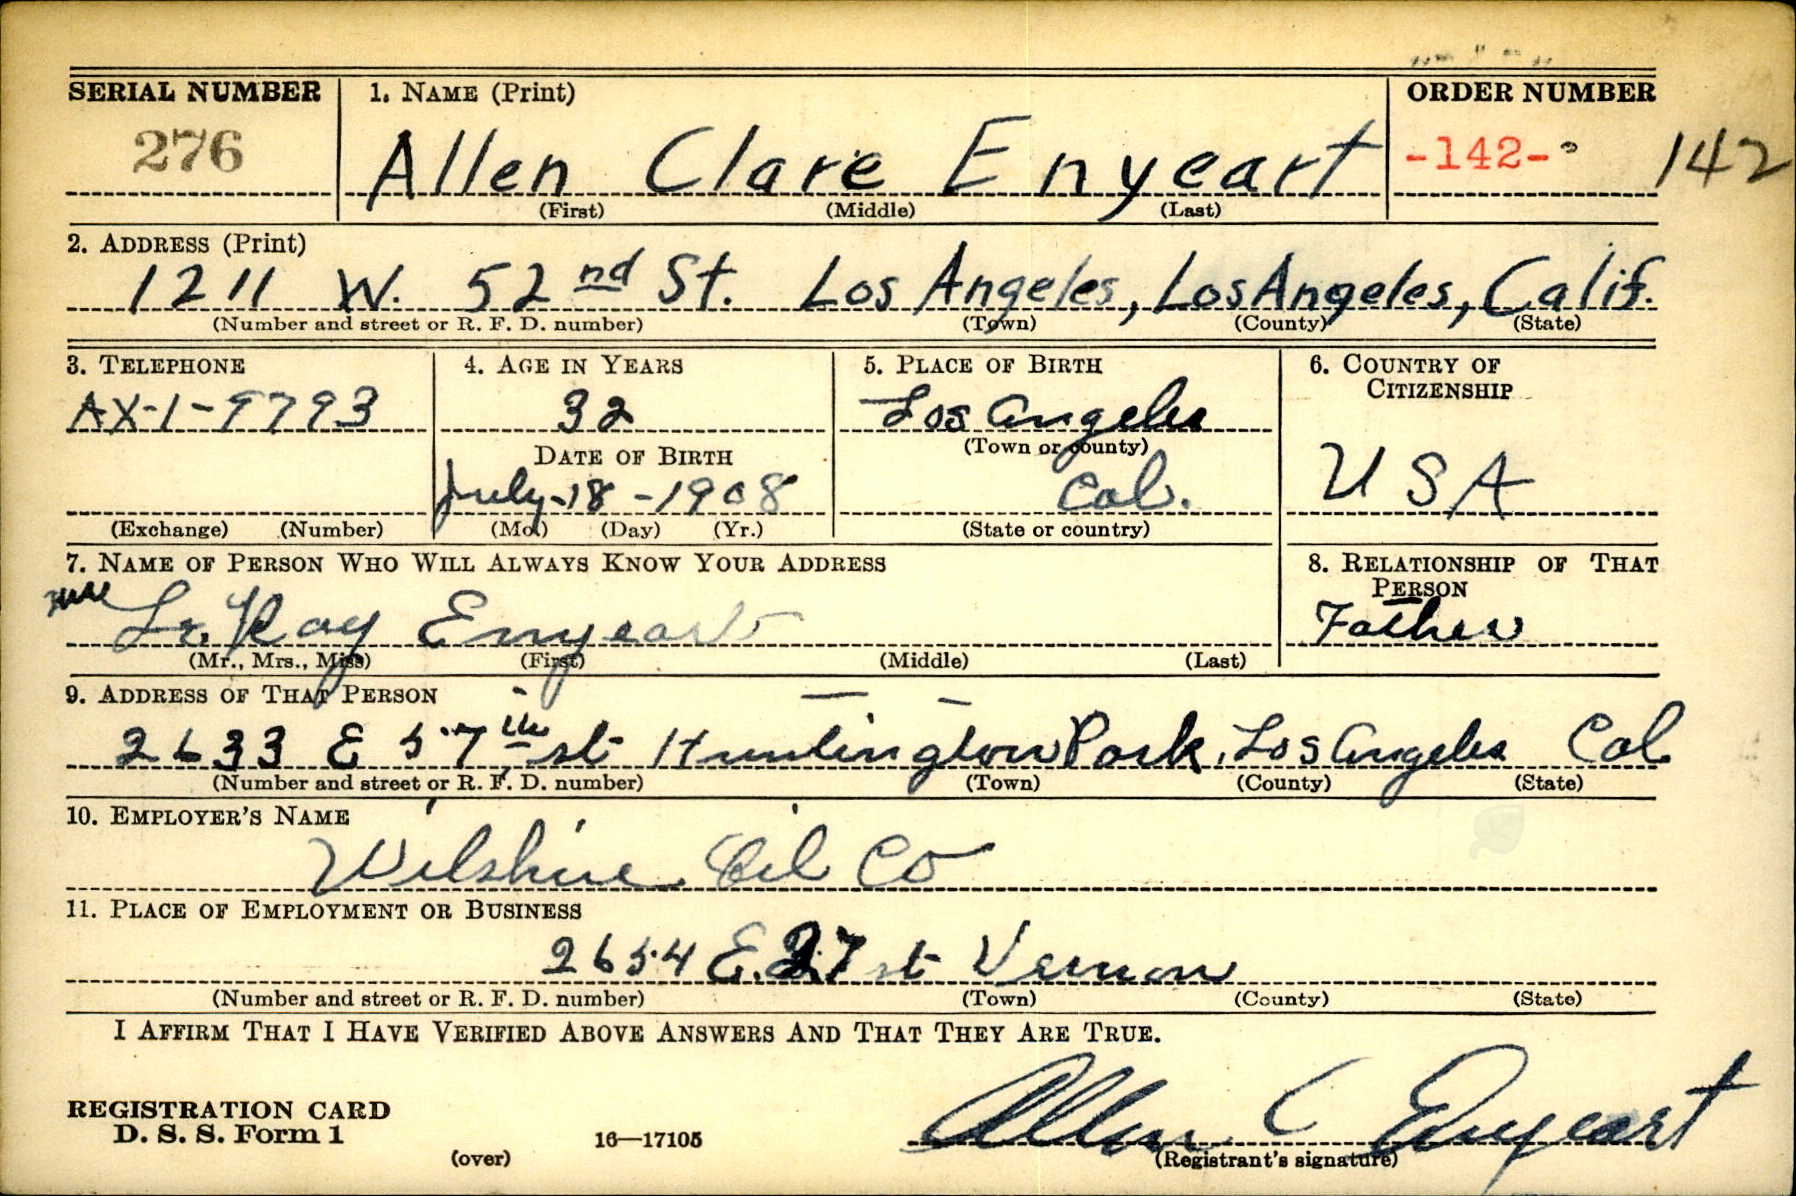 SERIAL NUMBER
276
1. NAME (Print)
Allen Clare Enyeart
(First) (Middle) (Last)
ORDER NUMBER
-142-
142
2. ADDRESS (Print)
1211 W. 52nd St. Los Angeles, Los Angeles, Calif.
(Number and street or R. F. D. number) (Town) (County) (State)
3. TELEPHONE
AX-1-9793
(Exchange) (Number)
4. AGE IN YEARS
32
DATE OF BIRTH
July-18-1908
(Mo.) (Day) (Yr.)
5. PLACE OF BIRTH
Los Angeles
(Town or county)
Cal.
(State or country)
6. COUNTRY OF
CITIZENSHIP
USA
7. NAME OF PERSON WHO WILL ALWAYS KNOW YOUR ADDRESS
Le Roy Enyeart
(Mr., Mrs., Miss) (First) (Middle) (Last)
8. RELATIONSHIP OF THAT
PERSON
Father
9. ADDRESS OF THAT PERSON
2633 E 57th st Huntington Park, Los Angeles Cal
(Number and street or R. F. D. number) (Town) (County) (State)
10. EMPLOYER'S NAME
Wilshire Oil Co
11. PLACE OF EMPLOYMENT OR BUSINESS
2654 E. 37 st Vernon
(Number and street or R. F. D. number) (Town) (County) (State)
I AFFIRM THAT I HAVE VERIFIED ABOVE ANSWERS AND THAT THEY ARE TRUE.
REGISTRATION CARD
D. S. S. Form 1
(over)
16—17105
Allen C Enyeart
(Registrant's signature)